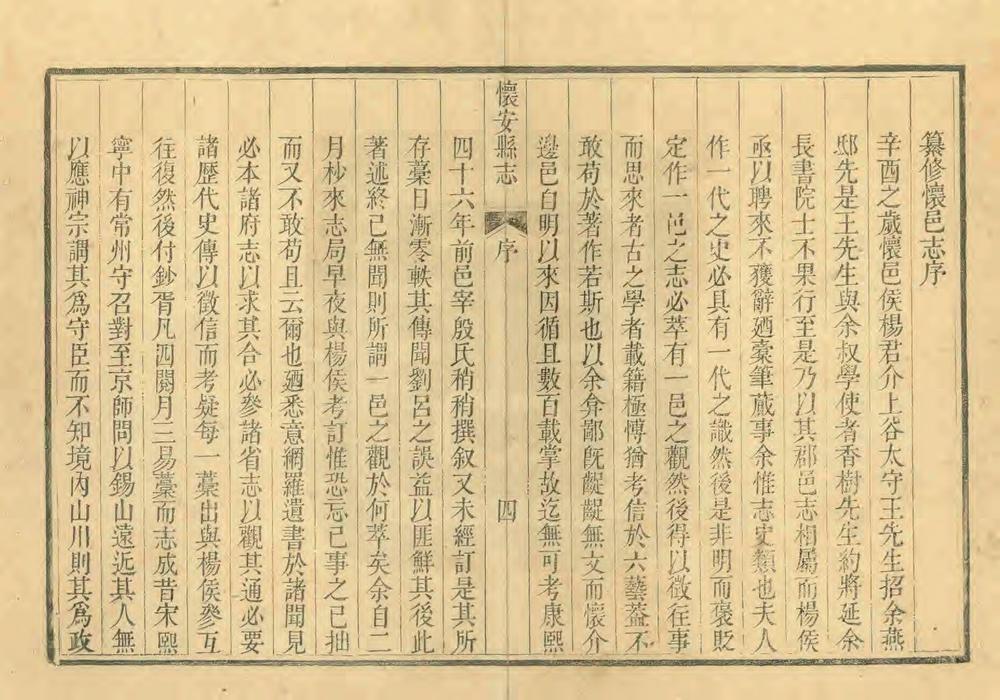 纂修懷邑志序
辛酉之歲懷邑侯楊君介上谷太守王先生招余燕
邸先是王先生與余叔學使者香樹先生約將延余
長書院士不果行至是乃以其郡邑志相屬而楊侯
亟以聘來不獲辭廼橐筆蕆事余惟志史類也夫人
作一代之史必具有一代之識然後是非明而褒貶
定作一邑之志必萃有一邑之觀然後得以徵往事
而思來者古之學者載籍極愽猶考信於六藝葢不
敢苟於著作若斯也以余弇鄙旣齷齪無文而懷介
邊邑自明以來因循且數百載掌故迄無可考康熙
懷安縣志 序 四
四十六年前邑宰殷氏稍稍撰叙又未經訂是其所
存藁日漸零軼其傳聞劉呂之誤益以匪鮮其後此
著述終已無聞則所謂一邑之觀於何萃矣余自二
月杪來志局早夜與楊侯考訂惟恐忘已事之已拙
而又不敢苟且云爾也廼悉意網羅遺書於諸聞見
必本諸府志以求其合必參諸省志以觀其通必要
諸歷代史傳以徵信而考疑每一藁出與楊侯參互
往復然後付鈔胥凡四閱月三易藁而志成昔宋熙
寧中有常州守召對至京師問以錫山遠近其人無
以應神宗謂其爲守臣而不知境內山川則其爲政